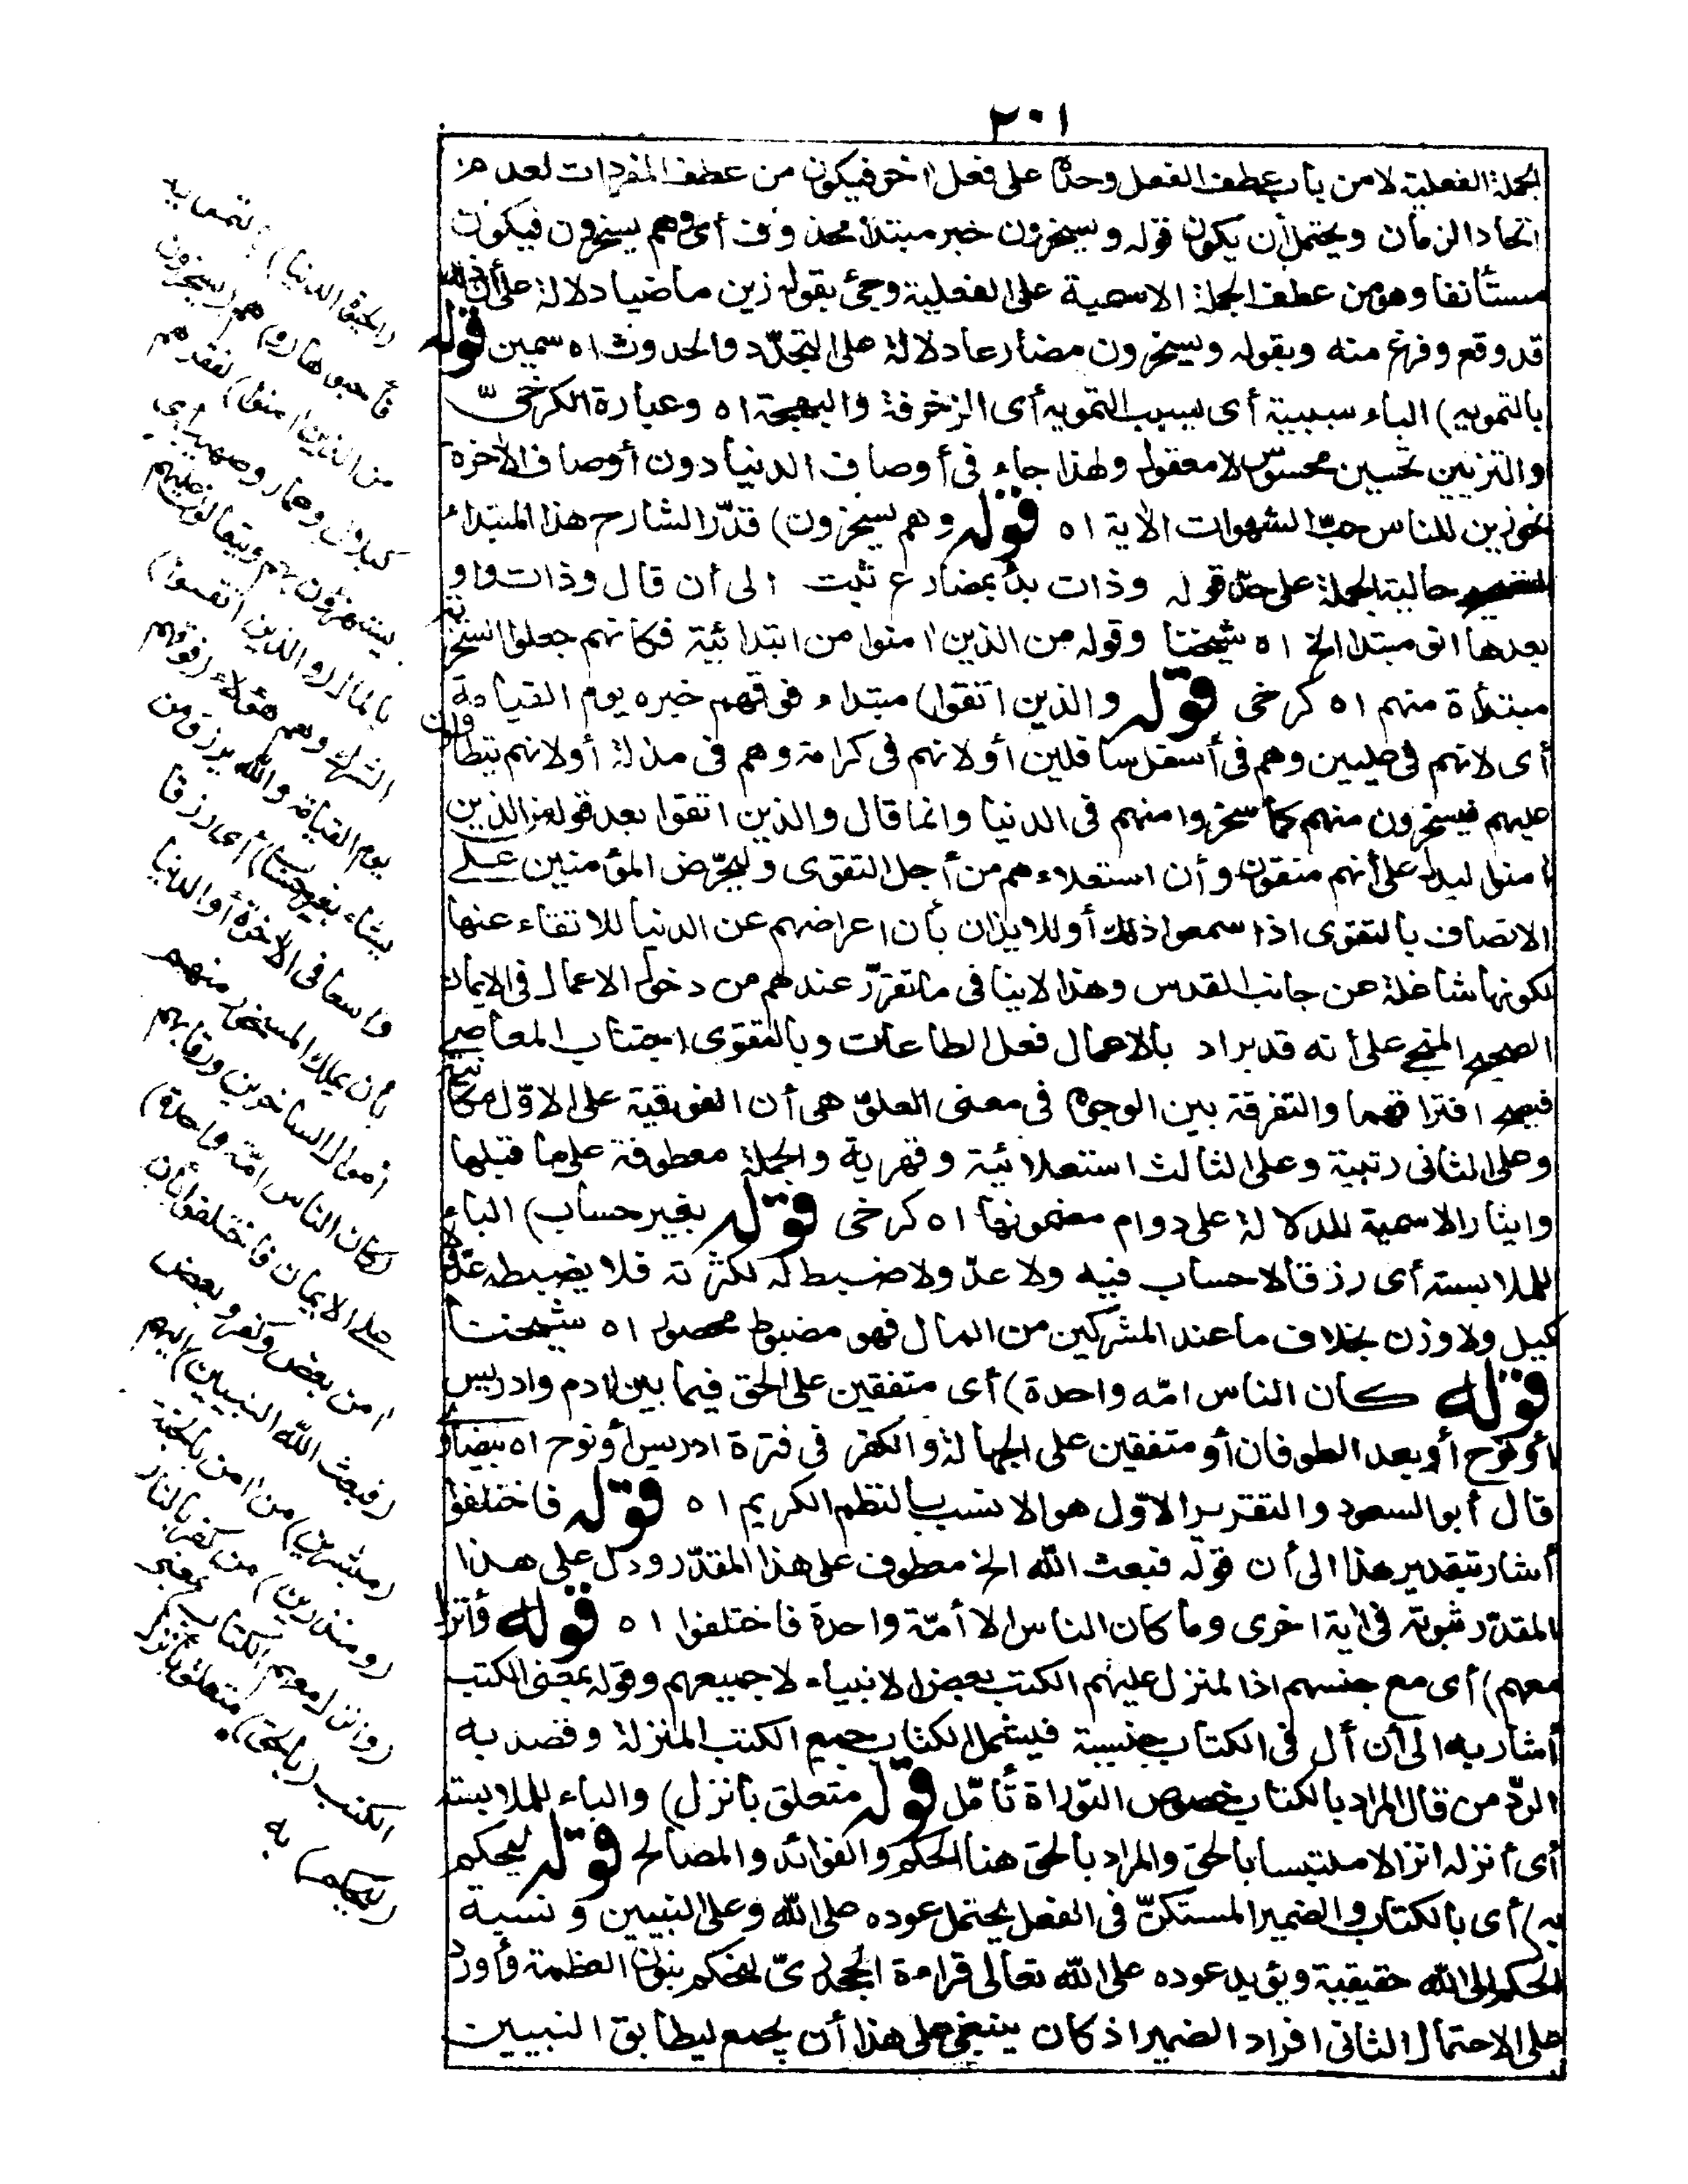 ٢٠١
الجملة الفعلية لا من باب عطف الفعل وحده على فعل آخر فيكون من عطف المفردات لعدم
اتحاد الزمان ويحتمل أن يكون قوله ويسخرون خبر مبتدأ محذوف أى وهم يسخرون فيكون
مستأنفا وهو من عطف الجملة الاسمية على الفعلية وجئ بقوله زين ماضيا دلالة على أن ذلك
قد وقع وفرغ منه وبقوله ويسخرون مضارعا دلالة على التجدّد والحدوث اه سمين قوله
بالتمويه) الباء سببية أى بسبب التمويه أى الزخرفة والبهجة اه وعبارة الكرخىّ
والتزيين تحسين محسوس لا معقول ولهذا جاء فى أوصاف الدنيا دون أوصاف الآخرة
نحو زين للناس حبّ الشهوات الآية اه قوله وهم يسخرون) قدّر الشارح هذا المبتدأ
حالية الجملة على حدّ قوله وذات بدأ بمضارع ثبت الى أن قال وذات واو
بعدها انو مبتدا الخ اه شيخنا وقوله من الذين آمنوا من ابتدائية فكانهم جعلوا السخرية
مبتدأة منهم اه كرخى قوله والذين اتقوا) مبتداء فوقهم خبره يوم القيامة
أى لانهم فى عليين وهم فى أسفل سافلين أو لانهم فى كرامة وهم فى مذلة أو لانهم يتطاولون
عليهم فيسخرون منهم كما سخروا منهم فى الدنيا وانما قال والذين اتقوا بعد قوله من الذين
آمنوا ليدل على أنهم متقون وأن استعلاءهم من أجل التقوى وليحرّض المؤمنين على
الاتصاف بالتقوى اذا سمعوا ذلك أو للايذان بأن اعراضهم عن الدنيا للاتقاء عنها
لكونها شاغلة عن جانب القدس وهذا لا ينافى ما تقرّر عندهم من دخول الاعمال فى الايمان
الصحيح المنجى على أنه قد يراد بالاعمال فعل الطاعات وبالتقوى اجتناب المعاصى
فيصح افتراقهما والتفرقة بين الوجوه فى معنى العلوّ هى أن الفوقية على الاوّل مكانية
وعلى الثانى رتبية وعلى الثالث استعلائية وقهرية والجملة معطوفة على ما قبلها
وايثار الاسمية للدلالة على دوام مضمونها اه كرخى قوله بغير حساب) الباء
للملابسة أى رزقا لا حساب فيه ولا عدّ ولا ضبط له لكثرته فلا يضبطه عدّ ولا
كيل ولا وزن بخلاف ما عند المشركين من المال فهو مضبوط محصول اه شيخنا
قوله كان الناس امّه واحدة) أى متفقين على الحق فيما بين ادم وادريس
أو نوح أو بعد الطوفان أو متفقين على الجهالة والكفر فى فترة ادريس أو نوح اه بيضاوى
قال أبو السعود والتقرير الاوّل هو الانسب بالنظم الكريم اه قوله فاختلفوا
أشار بتقدير هذا الى أن قوله فبعث الله الخ معطوف على هذا المقدّر ودل على هذا
المقدّر ثبوته فى آية اخرى وما كان الناس الا أمّة واحدة فاختلفوا اه قوله وأنزل
معهم) أى مع جنسهم اذ المنزل عليهم الكتب بعض الانبياء لا جميعهم وقوله بمعنى الكتب
أشار به الى أن أل فى الكتاب جنسية فيشمل الكتاب جميع الكتب المنزلة وقصد به
الردّ من قال المراد بالكتاب خصوص التوراة تأمّل قوله متعلق بأنزل) والباء للملابسة
أى أنزله انزالا ملتبسا بالحق والمراد بالحق هنا الحكم والفوائد والمصالح قوله ليحكم
به) أى بالكتاب والضمير المستكنّ فى الفعل يحتمل عوده على الله وعلى النبيين ونسبة
الحكم الى الله حقيقية ويؤيد عوده على الله تعالى قراءة الجحدرىّ لنحكم بنون العظمة وأورد
على الاحتمال الثانى افراد الضمير اذ كان ينبغى على هذا أن يجمع ليطابق النبيين
(الحيوة الدنيا) بالتمويه
فأحبوها (و) هم (يسخرون
من الذين آمنوا) لفقرهم
كبلال وعمار وصهيب أى
يستهزؤن بهم ويتعالون عليهم
بالمال (والذين اتقوا)
الشرك وهم هؤلاء (فوقهم
يوم القيامة والله يرزق من
يشاء بغير حساب) أى رزقا
واسعا فى الآخرة أو الدنيا
بأن يملك المسخور منهم
أموال الساخرين ورقابهم
(كان الناس امّة واحدة)
على الايمان فاختلفوا بأن
آمن بعض وكفر بعض
(فبعث الله النبيين) اليهم
(مبشرين) من آمن بالجنة
(ومنذرين) من كفر بالنار
(وأنزل معهم الكتاب) بمعنى
الكتب (بالحق) متعلق بأنزل
(ليحكم) به